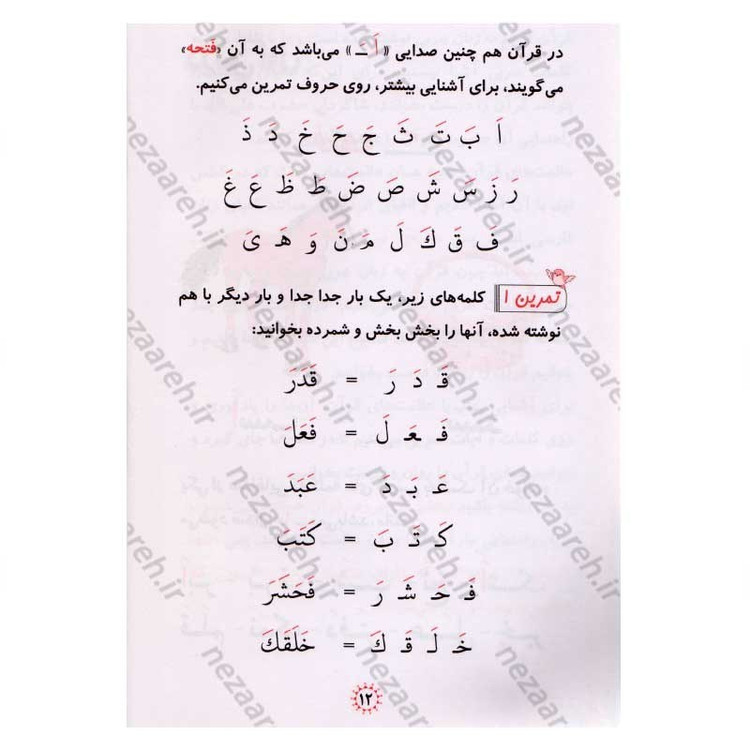 در قرآن هم چنین صدایی «اَ ـَ» می‌باشد که به آن «فتحه»
می‌گویند، برای آشنایی بیشتر، روی حروف تمرین می‌کنیم.
اَ بَ تَ ثَ جَ حَ خَ دَ ذَ
رَ زَ سَ شَ صَ ضَ طَ ظَ عَ غَ
فَ قَ كَ لَ مَ نَ وَ هَـ یَ
تمرین ۱ کلمه‌های زیر، یک بار جدا جدا و بار دیگر با هم
نوشته شده، آنها را بخش بخش و شمرده بخوانید:
قَـ دَ رَ = قَدَرَ
فَـ عَـ لَ = فَعَلَ
عَـ بَـ دَ = عَبَدَ
كَـ تَـ بَ = كَتَبَ
فَـ حَـ شَـ رَ = فَحَشَرَ
خَـ لَـ قَـ كَ = خَلَقَكَ
۱۲
nezaareh.ir